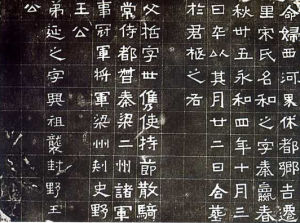 命婦西河界休都鄉吉遷
里宋氏名和之字秦嬴春
秋卅五永和四年十月三
日卒以其月廿二日合葬
於君柩之右
父哲字世儁使持節散騎
常侍都督秦梁二州諸軍
事冠軍將軍梁州刾史野
王公
弟延之字興祖襲封野王
公